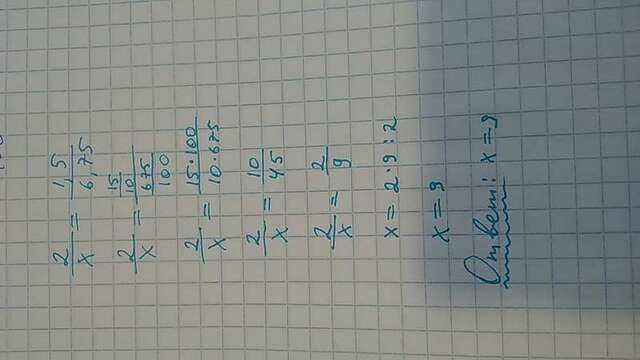 2/x = 1,5/6,75
2/x = 15/10 / 675/100
2/x = 15·100/10·675
2/x = 10/45
2/x = 2/9
x = 2·9:2
x = 9
Ответ: x = 9